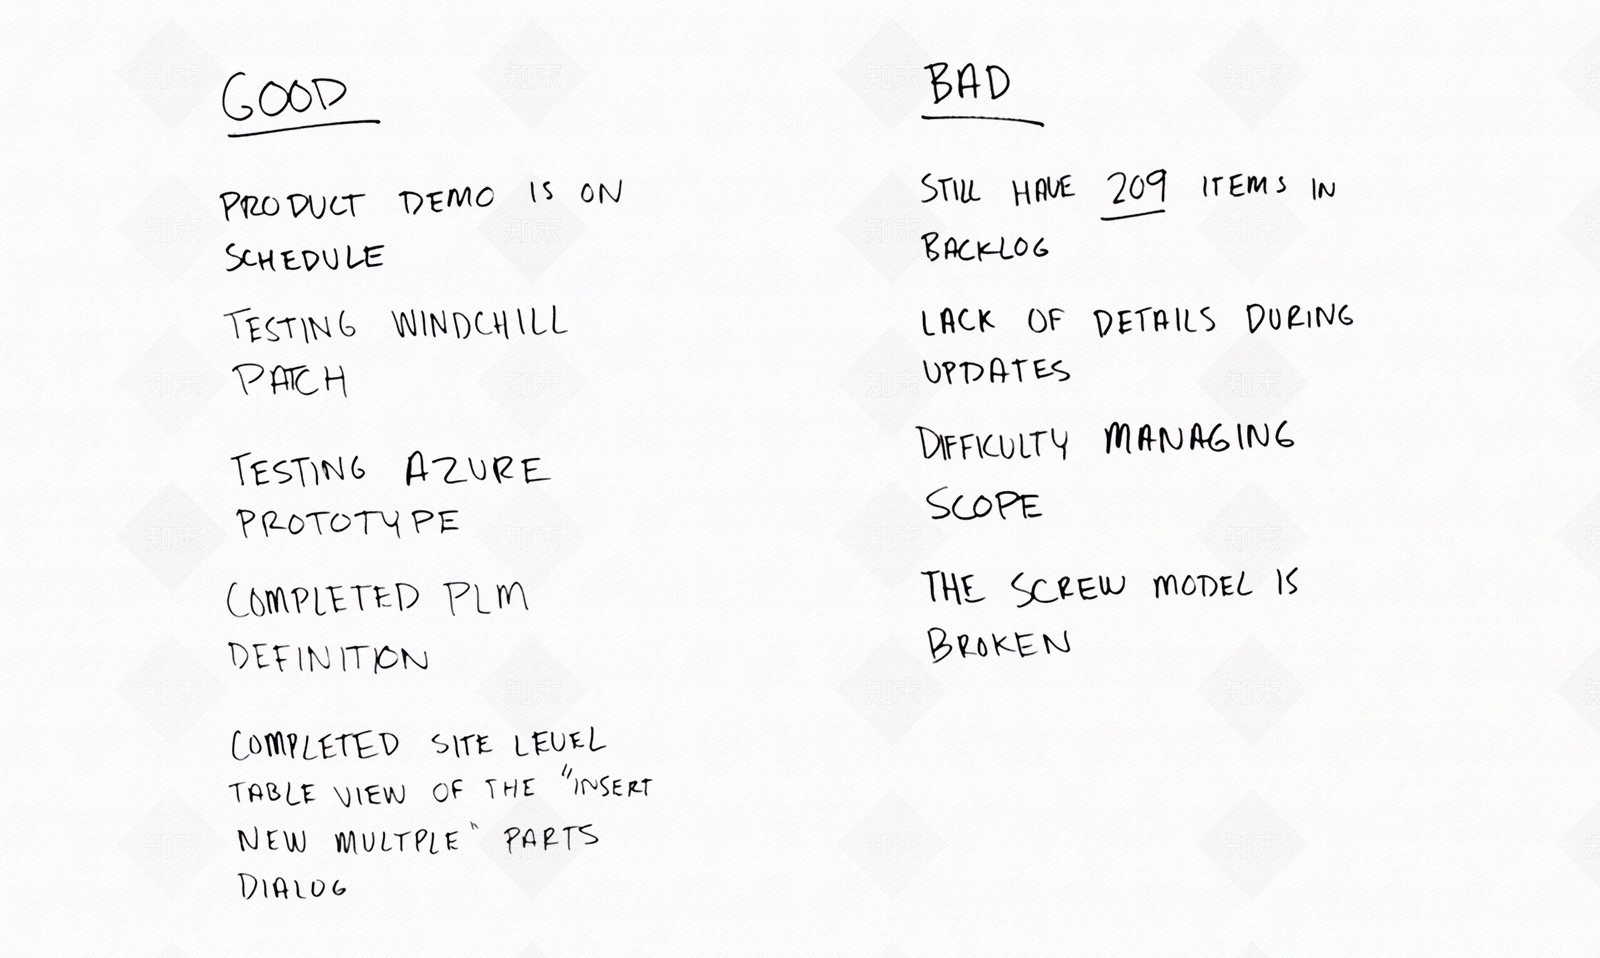 GOOD
PRODUCT DEMO IS ON
SCHEDULE
TESTING WINDCHILL
PATCH
TESTING AZURE
PROTOTYPE
COMPLETED PLM
DEFINITION
COMPLETED SITE LEVEL
TABLE VIEW OF THE "INSERT
NEW MULTPLE" PARTS
DIALOG
BAD
STILL HAVE 209 ITEMS IN
BACKLOG
LACK OF DETAILS DURING
UPDATES
DIFFICULTY MANAGING
SCOPE
THE SCREW MODEL IS
BROKEN